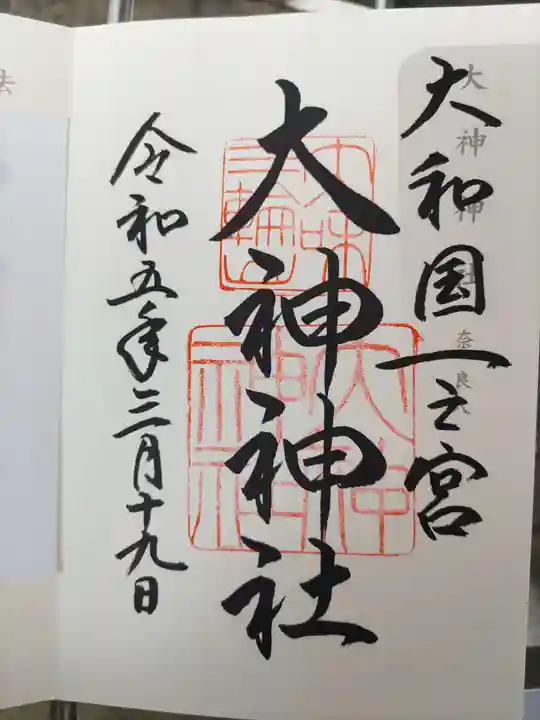 大和国一之宮
大神神社
奈良
大神神社
令和五年三月十九日
去